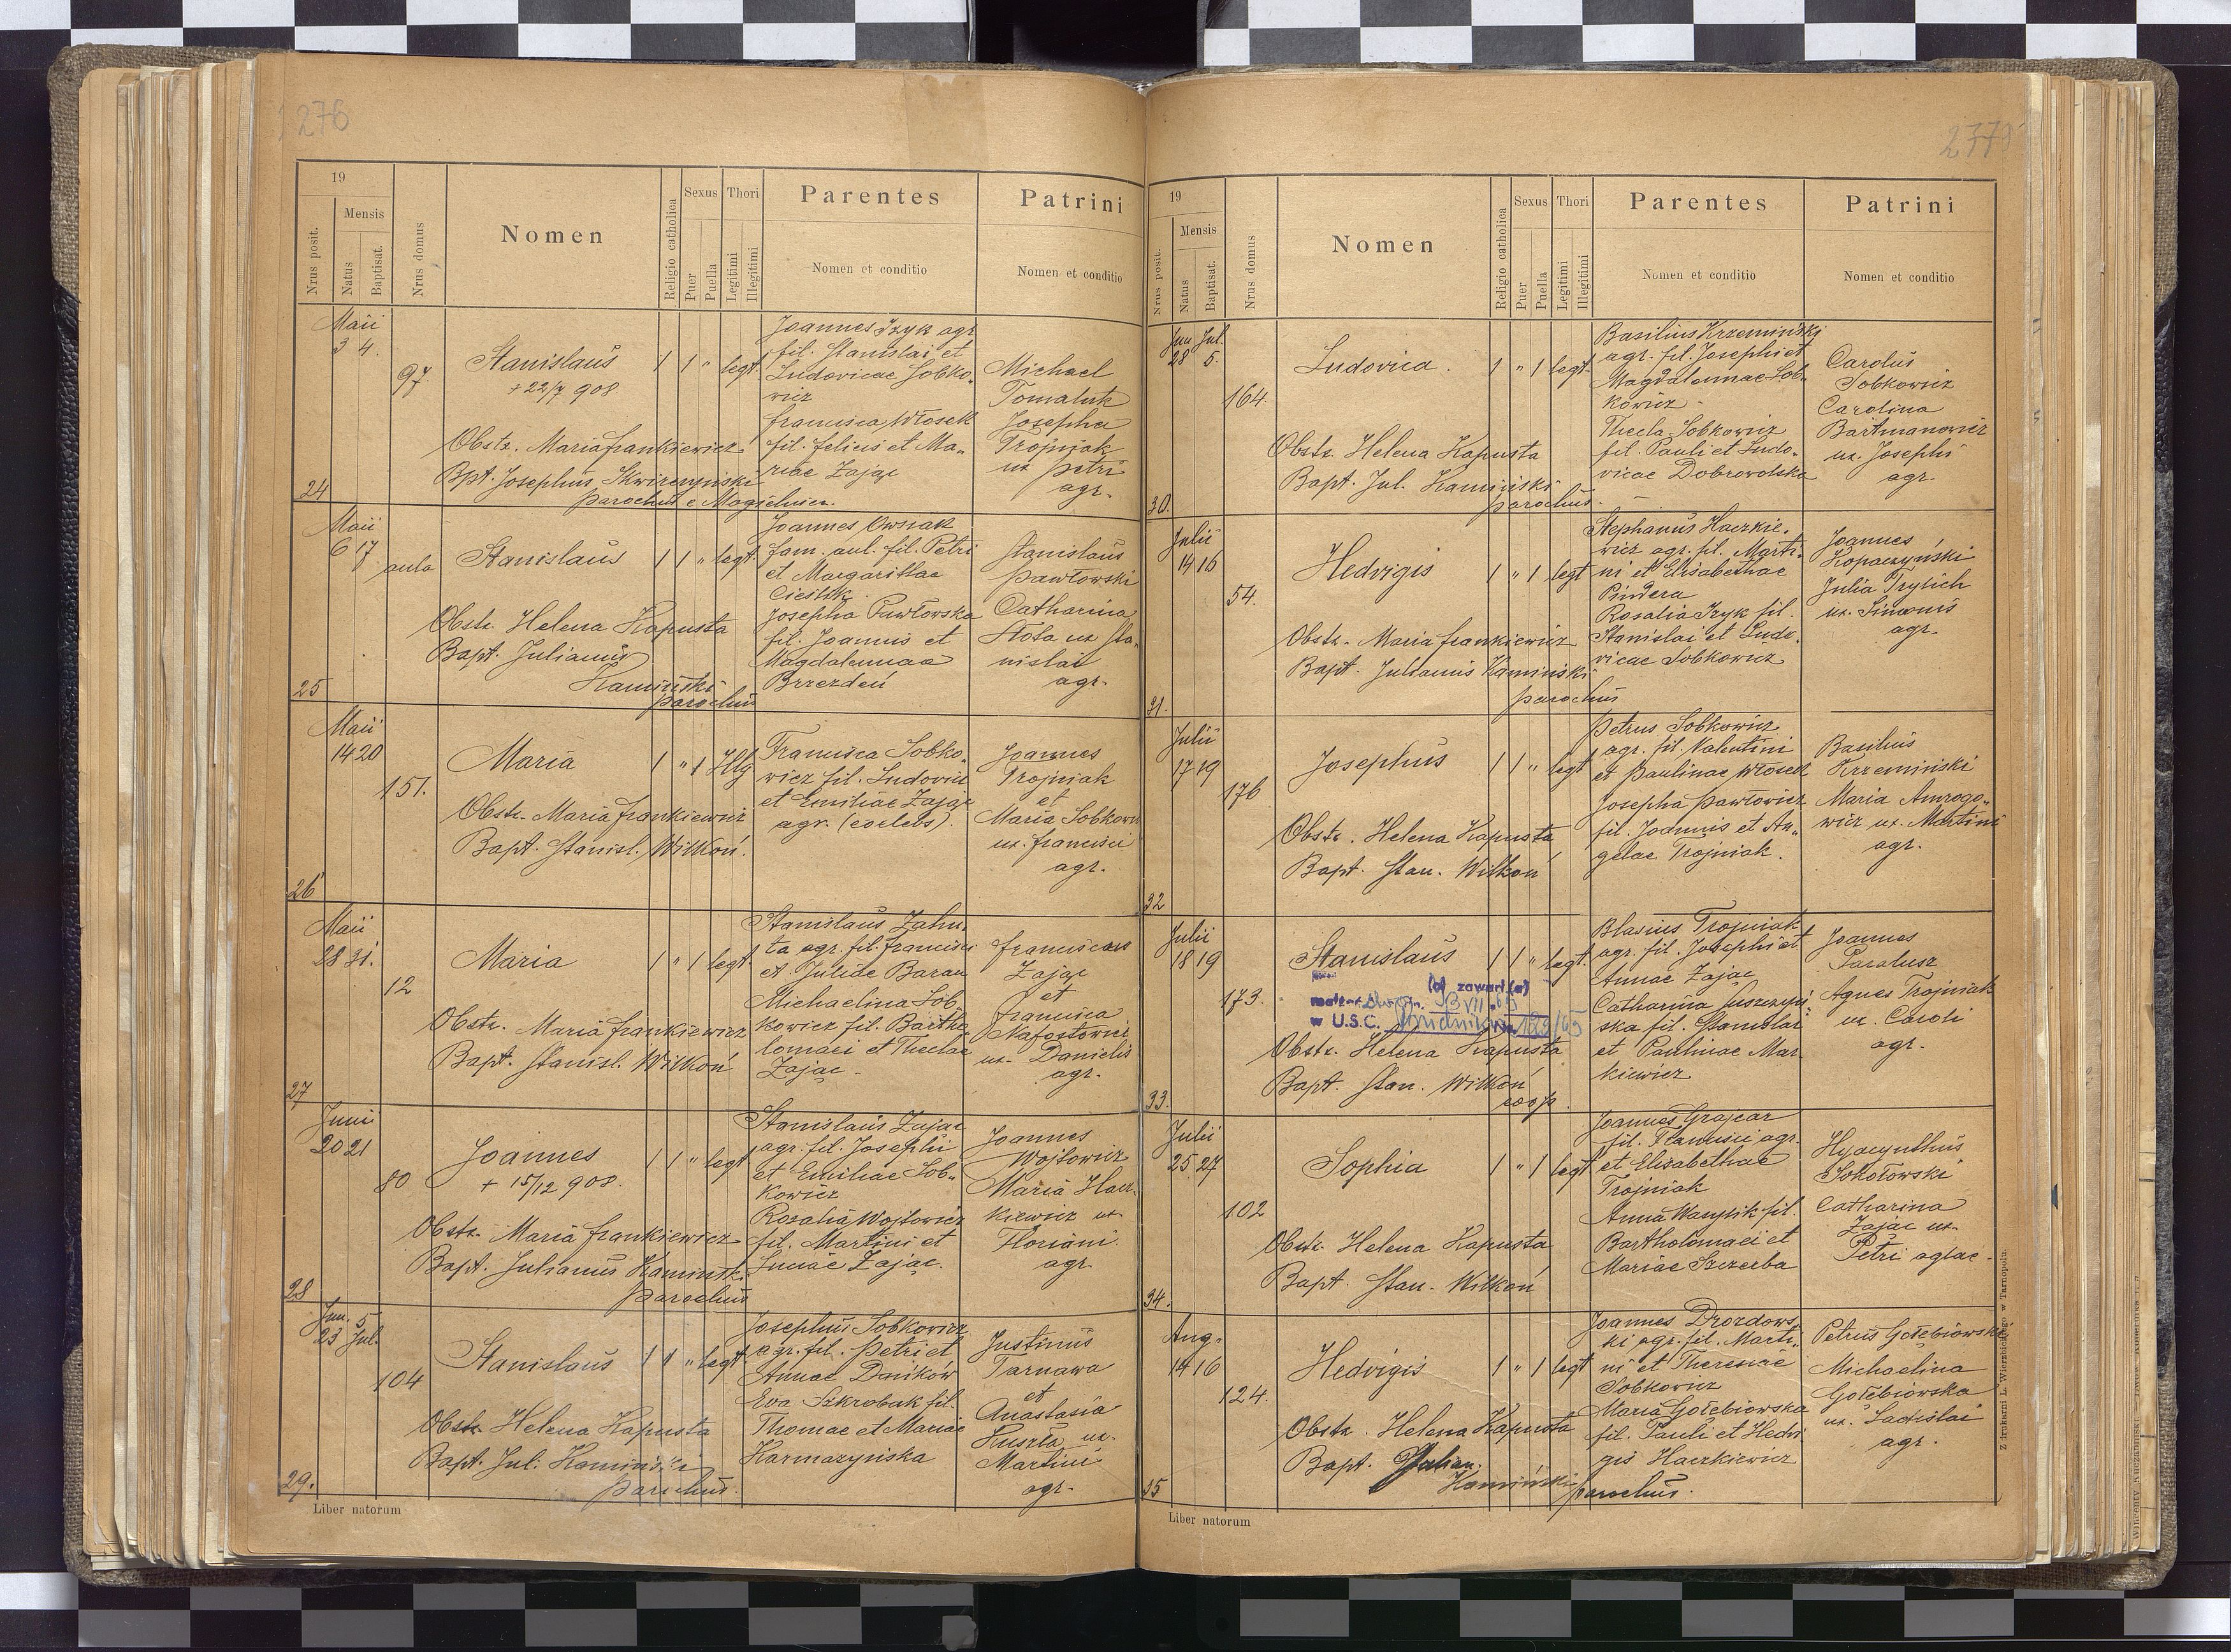 276
19
Mensis
Nrus posit.
Natus
Baptisat.
Nrus domus
Nomen
Religio catholica
Sexus
Puer
Puella
Thori
Legitimi
Illegitimi
Parentes
Nomen et conditio
Patrini
Nomen et conditio
Maii
3 4.
97.
Stanislaus
+ 22/7 908.
1 1 " legt.
Obstr. Maria Frankiewicz
Bpt. Josephus Skwirzyński
parochus e
24
Joannes Izyk agr
fil. Stanislai et
Ludovicae Sobko-
wicz
Francisca Włosek
fil. Felicis et Ma-
riae Zając
Michael
Tomaluk
Josepha
Trojniak
ux Petri
agr.
Maii
6 17
aula
Stanislaus
1 1 " legt.
Obstr. Helena Kapusta
Bapt. Julianus
Kamiński
parochus
25
Joannes Owsiak
fam. aul. fil. Petri
et Margarithae
Cieślik
Josepha Pawłowska
fil. Joannis et
Magdalennae
Brzezdeń
Stanislaus
Pawłowski
Catharina
Słota ux Sta-
nislai
agr.
Maii
14 20
151.
Maria
1 " 1 Illg
Obstr. Maria Frankiewicz
Bapt. Stanisl. Wilkoń.
26
Francisca Sobko-
wicz fil. Ludovici
et Emiliae Zając
agr. (coelebs).
Joannes
Trojniak
et
Maria Sobkowi
ux. Francisci
agr.
Maii
28 31.
12
Maria
1 " 1 legt.
Obstr. Maria Frankiewicz
Bapt. Stanisl. Wilkoń
27
Stanislaus Zahu-
ta agr. fil. Francisci
et Juliae Baran
Michaelina Sob-
kowicz fil. Bartho-
lomaei et Theclae
Zając
Franciscus
Zając
et
Francisca
Nafostowicz
ux. Danielis
agr.
Junii
20 21
80
Joannes
+ 15/12 908.
1 1 " legt
Obstr. Maria Frankiewicz
Bapt. Julianus Kamiński
parochus
28
Stanislaus Zając
agr. fil. Josephi
et Emiliae Sob-
kowicz
Rosalia Wojtowicz
fil. Martini et
Luciae Zając.
Joannes
Wojtowicz
Maria Hacz-
kiewicz ux.
Floriani
agr.
Jun. 5
23 Jul.
104
Stanislaus
1 1 " legt
Obstr. Helena Kapusta
Bapt. Jul. Kamiński
parochus.
29.
Josephus Sobkowicz
agr. fil. Petri et
Annae Dańków
Eva Szkrobak fil.
Thomae et Mariae
Harmazyńska
Justinus
Tarnawa
et
Anastasia
Kuszła ux.
Martini
agr.
Liber natorum
19
Mensis
Nrus posit.
Natus
Baptisat.
Nrus domus
Nomen
Religio catholica
Sexus
Puer
Puella
Thori
Legitimi
Illegitimi
Parentes
Nomen et conditio
Patrini
Nomen et conditio
Jun Jul.
28 5.
164.
Ludovica.
1 " 1 legt.
Obstr. Helena Kapusta
Bapt. Jul. Kamiński
parochus.
30.
Basilius Krzemiński
agr. fil. Josephi et
Magdalennae Sob-
kowicz
Thecla Sobkowicz
fil. Pauli et Ludo-
vicae Dobrowolska
Carolus
Sobkowicz
Carolina
Bartmanowicz
ux. Josephi
agr.
Julii
14 16
54.
Hedvigis
1 " 1 legt
Obstr. Maria Frankiewicz
Bapt. Julianus Kamiński
parochus
31.
Stephanus Haczkie-
wicz agr. fil. Marti-
ni et Elisabethae
Pindera
Rosalia Izyk fil.
Stanislai et Ludo-
vicae Sobkowicz
Joannes
Kopaczyński
Julia Trylich
ux. Simonis
agr.
Julii
17 19
176
Josephus
1 1 " legt
Obstr. Helena Kapusta
Bapt. Stan. Wilkoń
32
Petrus Sobkowicz
agr. fil. Valentini
et Paulinae Włosek
Josepha Pawłowicz
fil. Joannis et An-
gelae Trojniak.
Basilius
Krzemiński
Maria Amrogo-
wicz ux. Martini
agr.
Julii
18 19
173.
Stanislaus
1 1 " legt.
(a) zawarł(a)
w U.S.C.
Obstr. Helena Kapusta
Bapt. Stan. Wilkoń
coop.
33.
Blasius Trojniak
agr. fil. Josephi et
Annae Zając
Catharina Suszczyń-
ska fil. Stanislai
et Paulinae Mar-
kiewicz
Joannes
Paralusz
Agnes Trojniak
ux. Caroli
agr.
Julii
25 27
102
Sophia
1 " 1 legt
Obstr. Helena Kapusta
Bapt. Stan. Wilkoń
34.
Joannes Grajcar
fil. Francisci agr.
et Elisabethae
Trojniak
Anna Wasylik fil.
Bartholomaei et
Mariae Szczerba
Hyacynthus
Sokołowski
Catharina
Zając ux.
Petri
Aug.
14 16
124.
Hedvigis
1 " 1 legt
Obstr. Helena Kapusta
Bapt. Julian.
Kamiński parochus.
35
Joannes Drozdows-
ki agr. fil. Marti-
ni et Theresiae
Sobkowicz
Maria Gołębiowska
fil. Pauli et Hedvi
gis Haczkiewicz
Petrus Gołębiowski
Michaelina
Gołębiowska
ux. Ladislai
agr.
Liber natorum
Z drukarni L. Wierzbickiego w Tarnopolu.